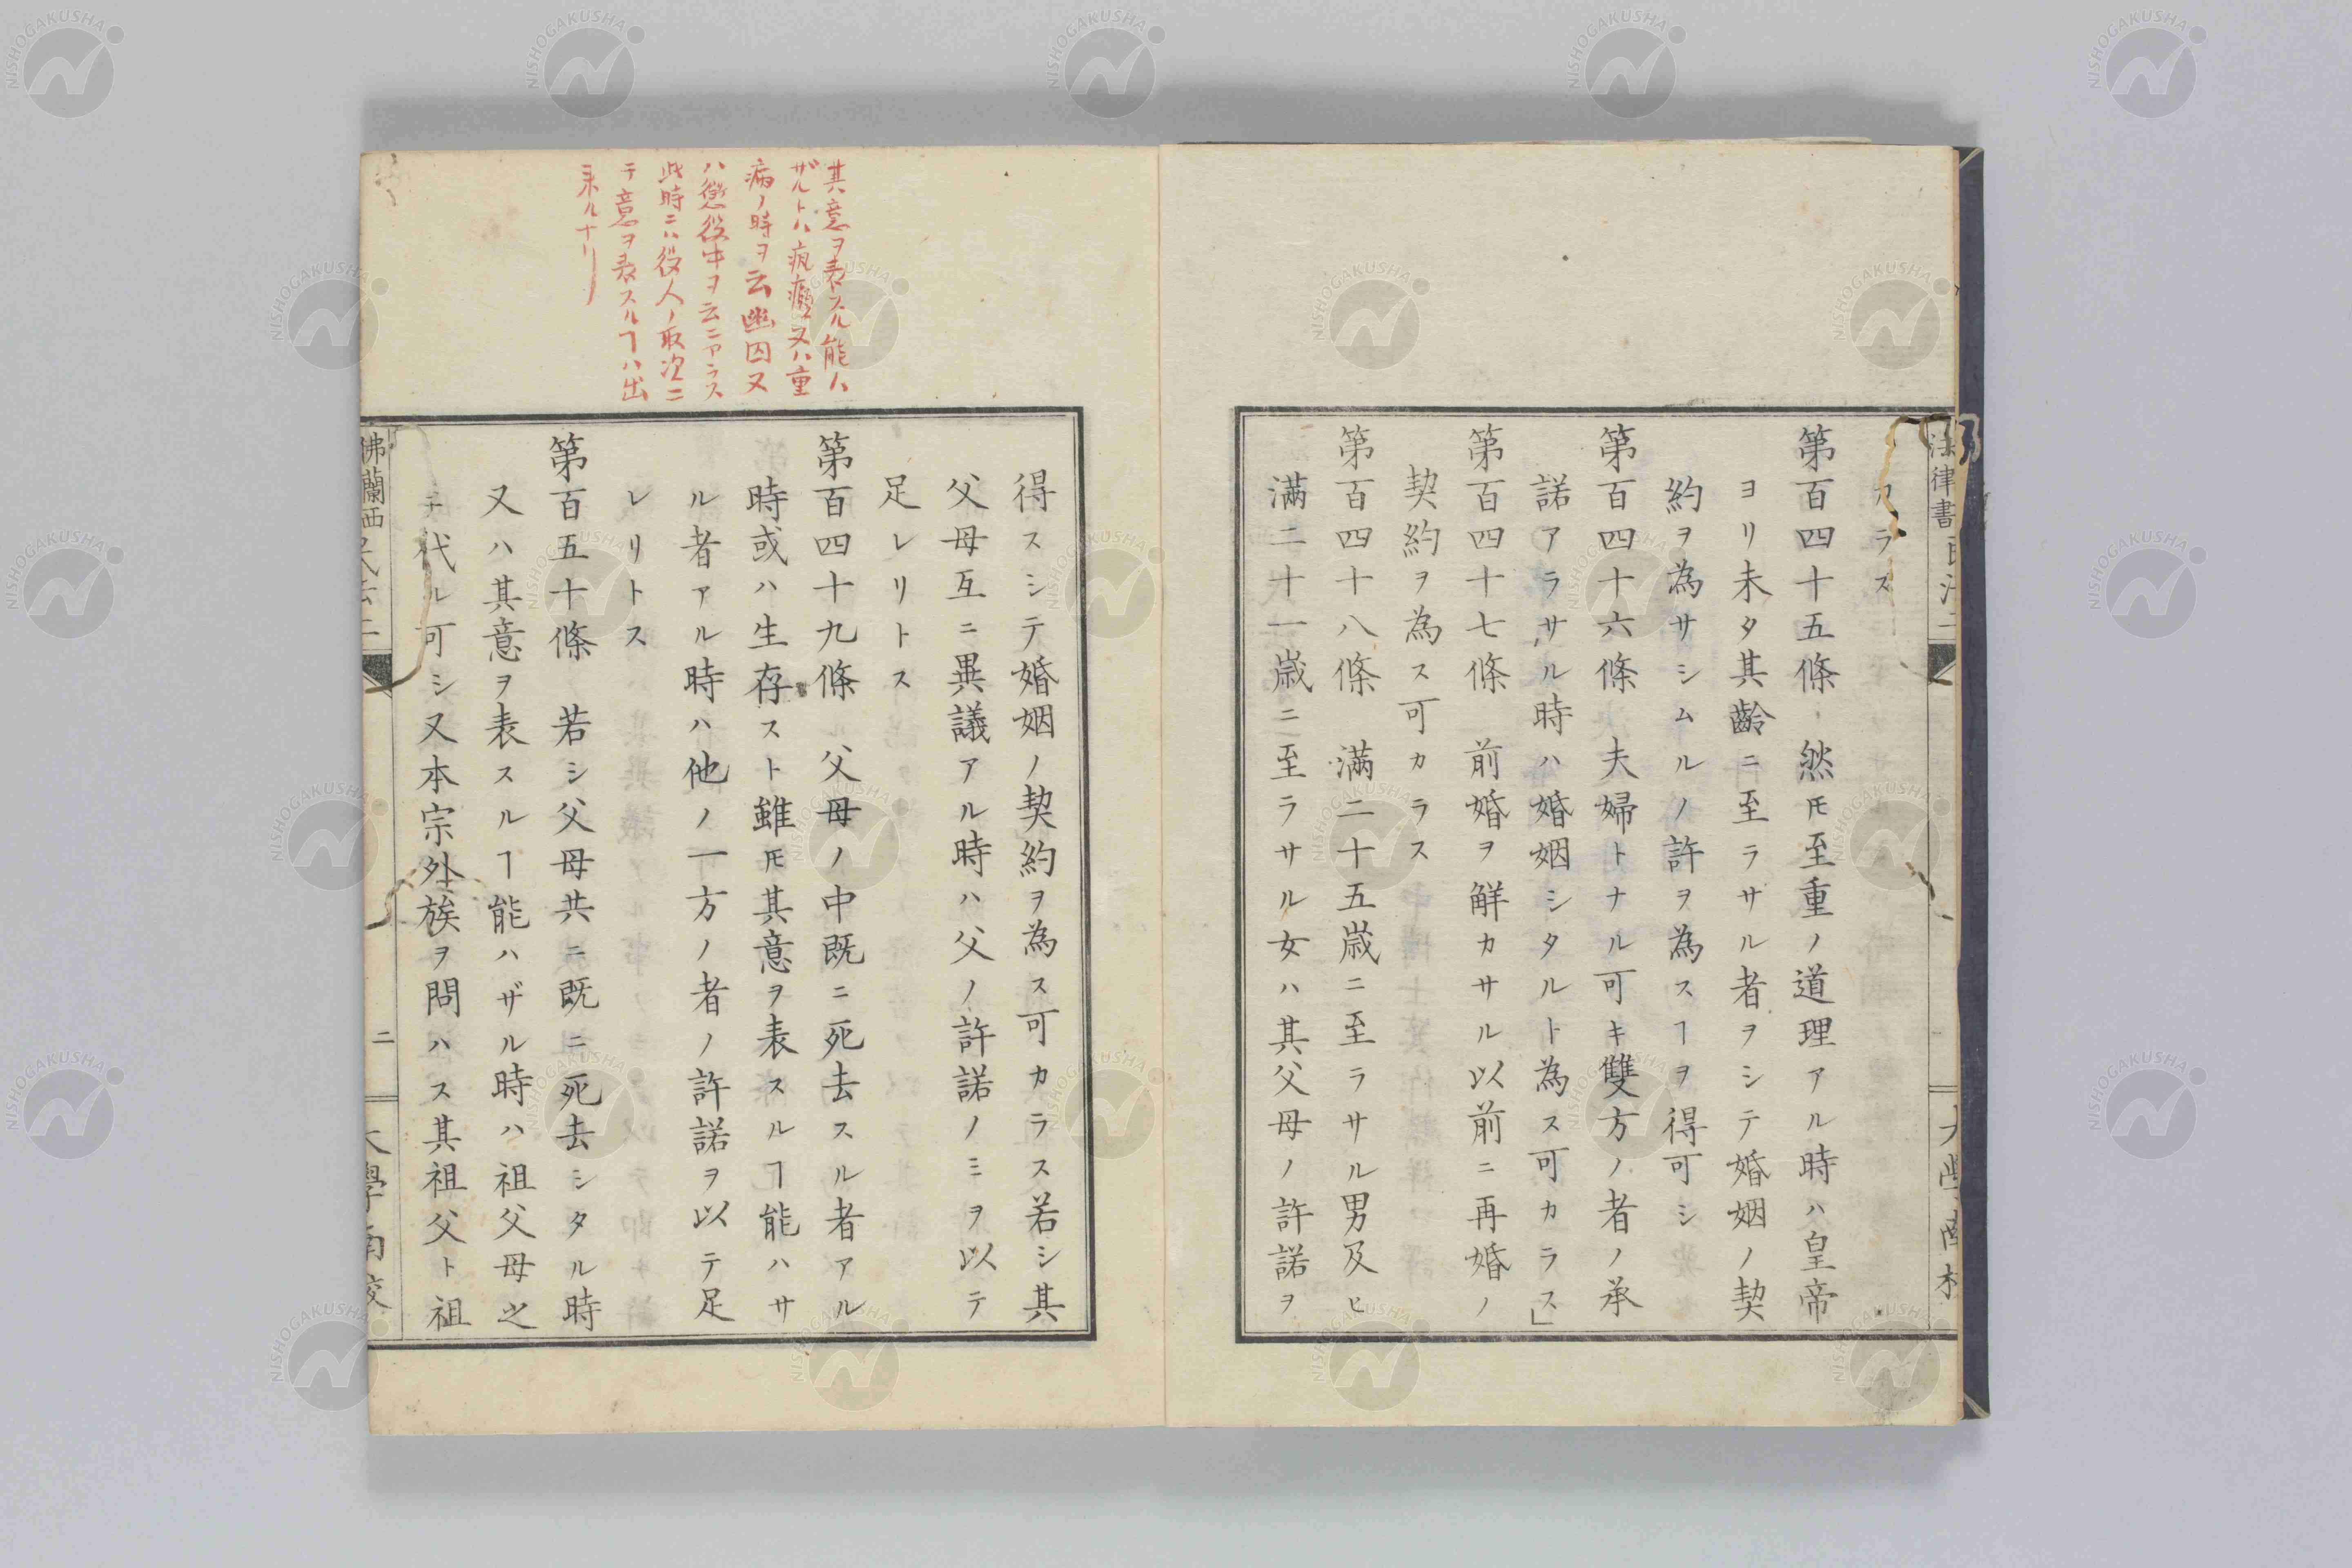 カラス
第百四十五條 然𪜈至重ノ道理アル時ハ皇帝
ヨリ未タ其齡ニ至ラサル者ヲシテ婚姻ノ契
約ヲ為サシムルノ許ヲ為スヿヲ得可シ
第百四十六條 夫婦トナル可キ雙方ノ者ノ承
諾アラサル時ハ婚姻シタルト為ス可カラス」
第百四十七條 前婚ヲ解カサル以前ニ再婚ノ
契約ヲ為ス可カラス
第百四十八條 滿二十五歳ニ至ラサル男及ヒ
滿二十一歳ニ至ラサル女ハ其父母ノ許諾ヲ
其意ヲ表スル能ハ
ザルトハ瘋癲又ハ重
病ノ時ヲ云幽囚又
ハ懲役中ヲ云ニアラス
此時ニハ役人ノ取次ニ
テ意ヲ表スルヿハ出
来ルナリ
得スシテ婚姻ノ契約ヲ為ス可カラス若シ其
父母互ニ異議アル時ハ父ノ許諾ノミヲ以テ
足レリトス
第百四十九條 父母ノ中既ニ死去スル者アル
時或ハ生存スト雖𪜈其意ヲ表スルヿ能ハサ
ル者アル時ハ他ノ一方ノ者ノ許諾ヲ以テ足
レリトス
第百五十條 若シ父母共ニ既ニ死去シタル時
又ハ其意ヲ表スルヿ能ハザル時ハ祖父母之
ニ代ル可シ又本宗外族ヲ問ハス其祖父ト祖
佛蘭西
二
大學南校
法律書
NISHOGAKUSHA